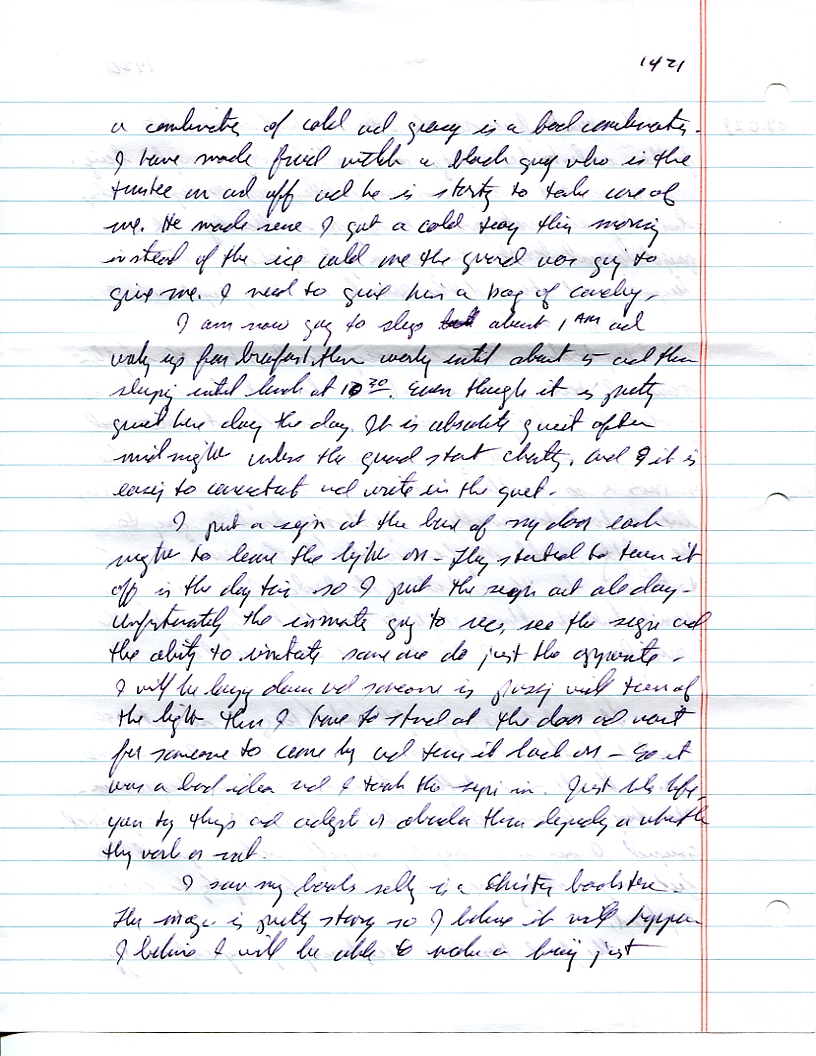 1421
a combination of cold and greasy is a bad combination.
I have made friend with a black guy who is the
trustee on and off and he is starting to take care of
me. He made sure I got a cold tray this morning
instead of the ice cold one the guard was going to
give me. I need to give him a bag of candy.
I am now going to sleep about 1 AM and
waking up for breakfast, then working until about 5 and then
sleeping until lunch at 10 30. Even though it is pretty
quiet here during the day. It is absolutely quiet after
midnight unless the guard start chatting. And it is
easier to concentrate and write in the quiet.
I put a sign at the base of my door each
night to leave the light on - They started to turn it
off in the day time so I put the sign out all day -
Unfortunately the inmates going to rec, see the sign and
the ability to irritate someone do just the opposite -
I will be laying down and someone is passing will turn off
the light then I have to stand at the door and wait
for someone to come by and turn it back on - So it
was a bad idea and I took the sign in. Just like life -
you try things and adapt or abandon them depending on whether
they work or not.
I saw my books selling in a Christian bookstore -
The image is pretty strong so I believe it will happen
I believe I will be able to make a living just